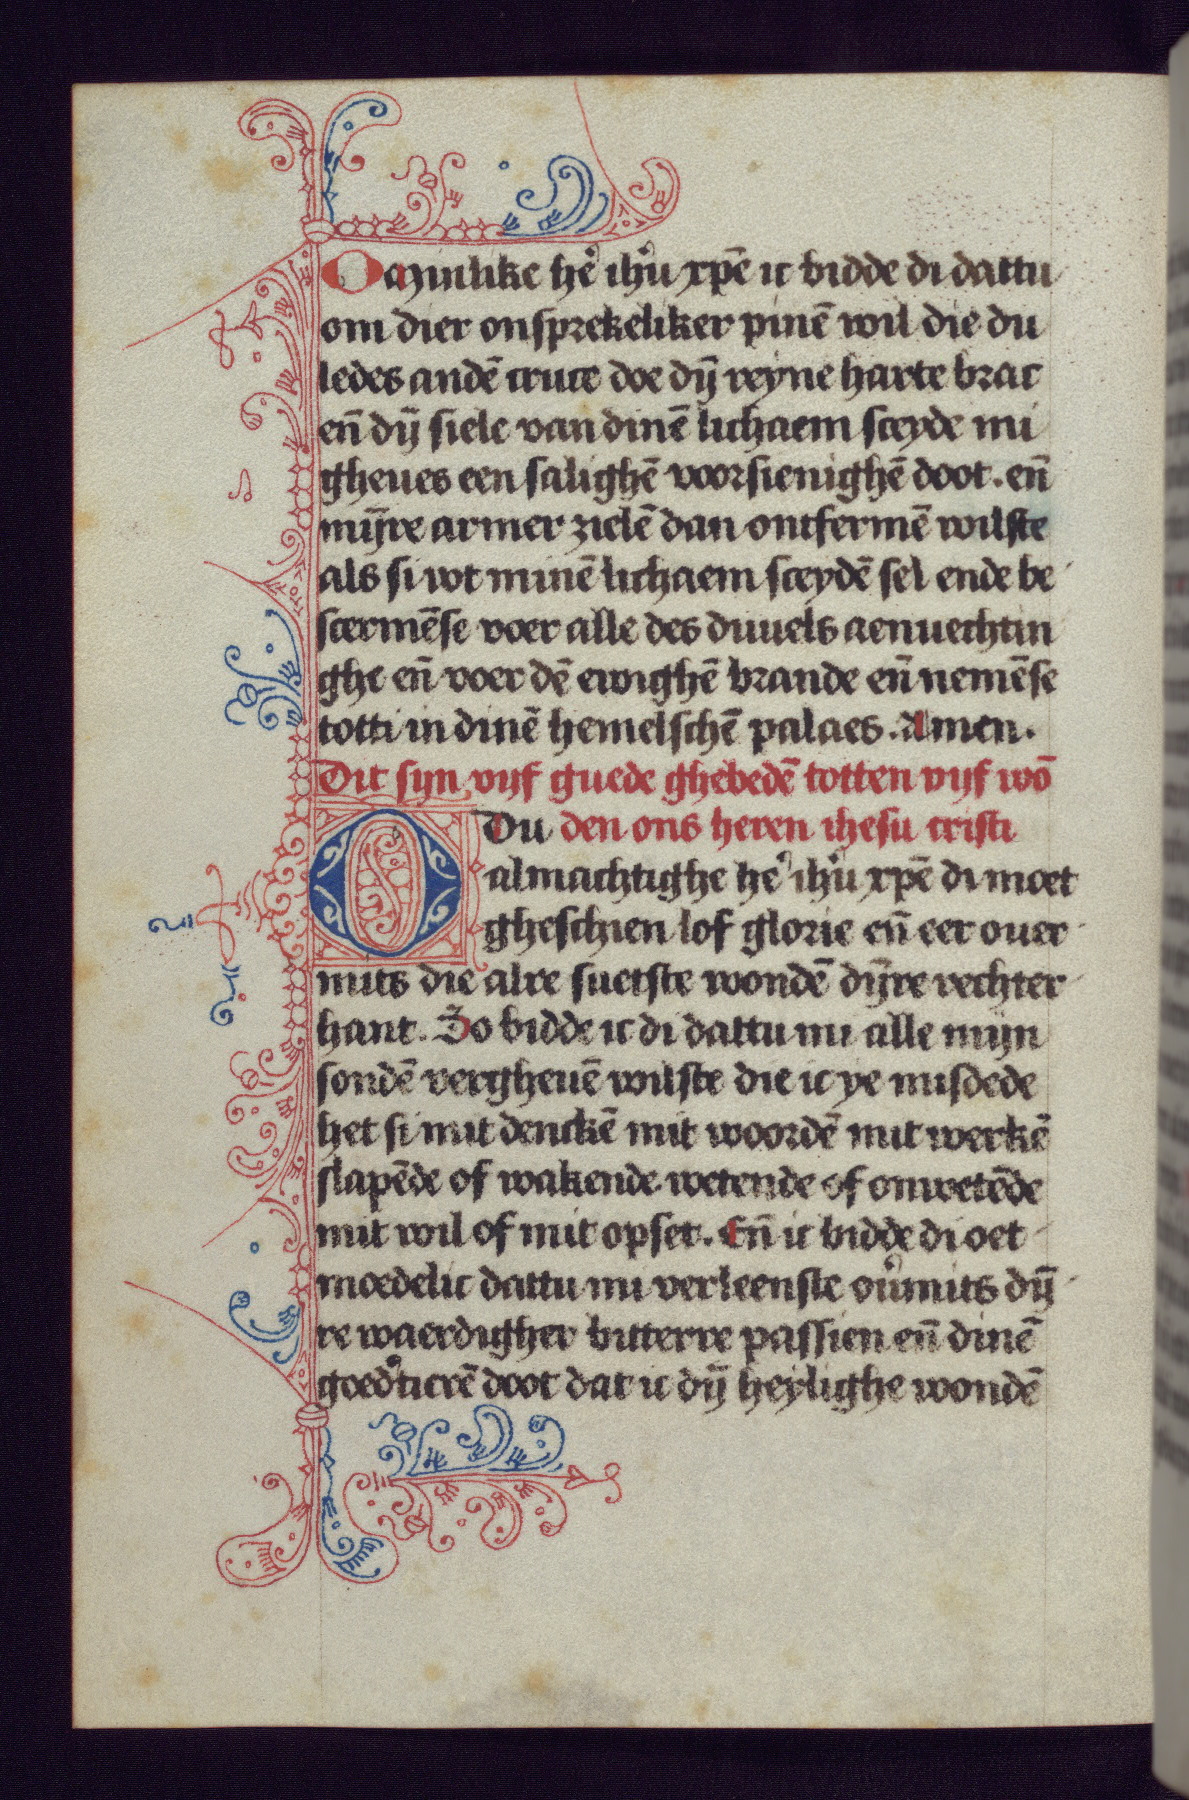 O mīnlike hē ihū xpē ic bidde di dattu
om dier onsprekeliker pinē wil die du
ledes andē cruce doe dȳ reyne harte brac
eñ dȳ siele van dinē lichaem sceyde mi
gheues een salighē voorsienighē doot. eñ
mȳre armer zielē dan ontfermē wilste
als si wt minē lichaem sceydē sel ende be
scermēse voer alle des duuels aenuechtin
ghe eñ voer dē ewighē brande eñ nemēse
totti in dinē hemelschē palaes. Amen.
Dit syn vyf guede ghebedē totten vyf wō
Du den ons heren ihesu cristi
O almachtighe hē ihū xpē di moet
gheschien lof glorie eñ eer ouer
mits die alre suetste wondē dȳre rechter
hant. So bidde ic di dattu mi alle mijn
sondē vergheuē wilste die ic ye misdede
het si mit denckē mit woordē mit werkē
slapēde of wakende wetende of onwetēde
mit wil of mit opset. Eñ ic bidde di oet
moedelic dattu mi verleenste ou̓mits dȳ
re waerdigher bitterre passien eñ dinē
goed̓ticrē doot dat ic dȳ heylighe wondē